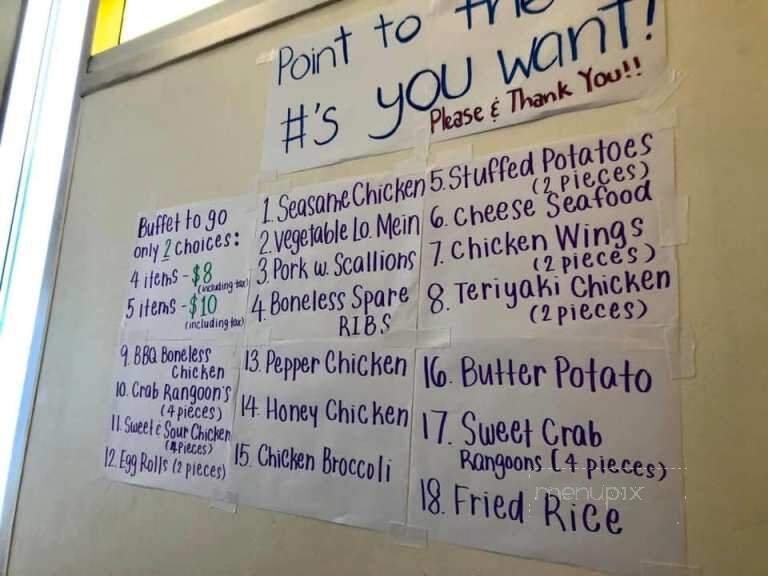 Point to the
#'s you want!
Please & Thank You!!
Buffet to go
only 2 choices:
4 items - $8
(including tax)
5 items - $10
(including tax)
1. Seasame Chicken
2. Vegetable Lo. Mein
3. Pork w. Scallions
4. Boneless Spare
RIBS
5. Stuffed Potatoes
(2 pieces)
6. Cheese Seafood
7. Chicken Wings
(2 pieces)
8. Teriyaki Chicken
(2 pieces)
9. BBQ Boneless
Chicken
10. Crab Rangoon's
(4 pieces)
11. Sweet & Sour Chicken
(4 pieces)
12. Egg Rolls (2 pieces)
13. Pepper Chicken
14. Honey Chicken
15. Chicken Broccoli
16. Butter Potato
17. Sweet Crab
Rangoons (4 pieces)
18. Fried Rice
menupix